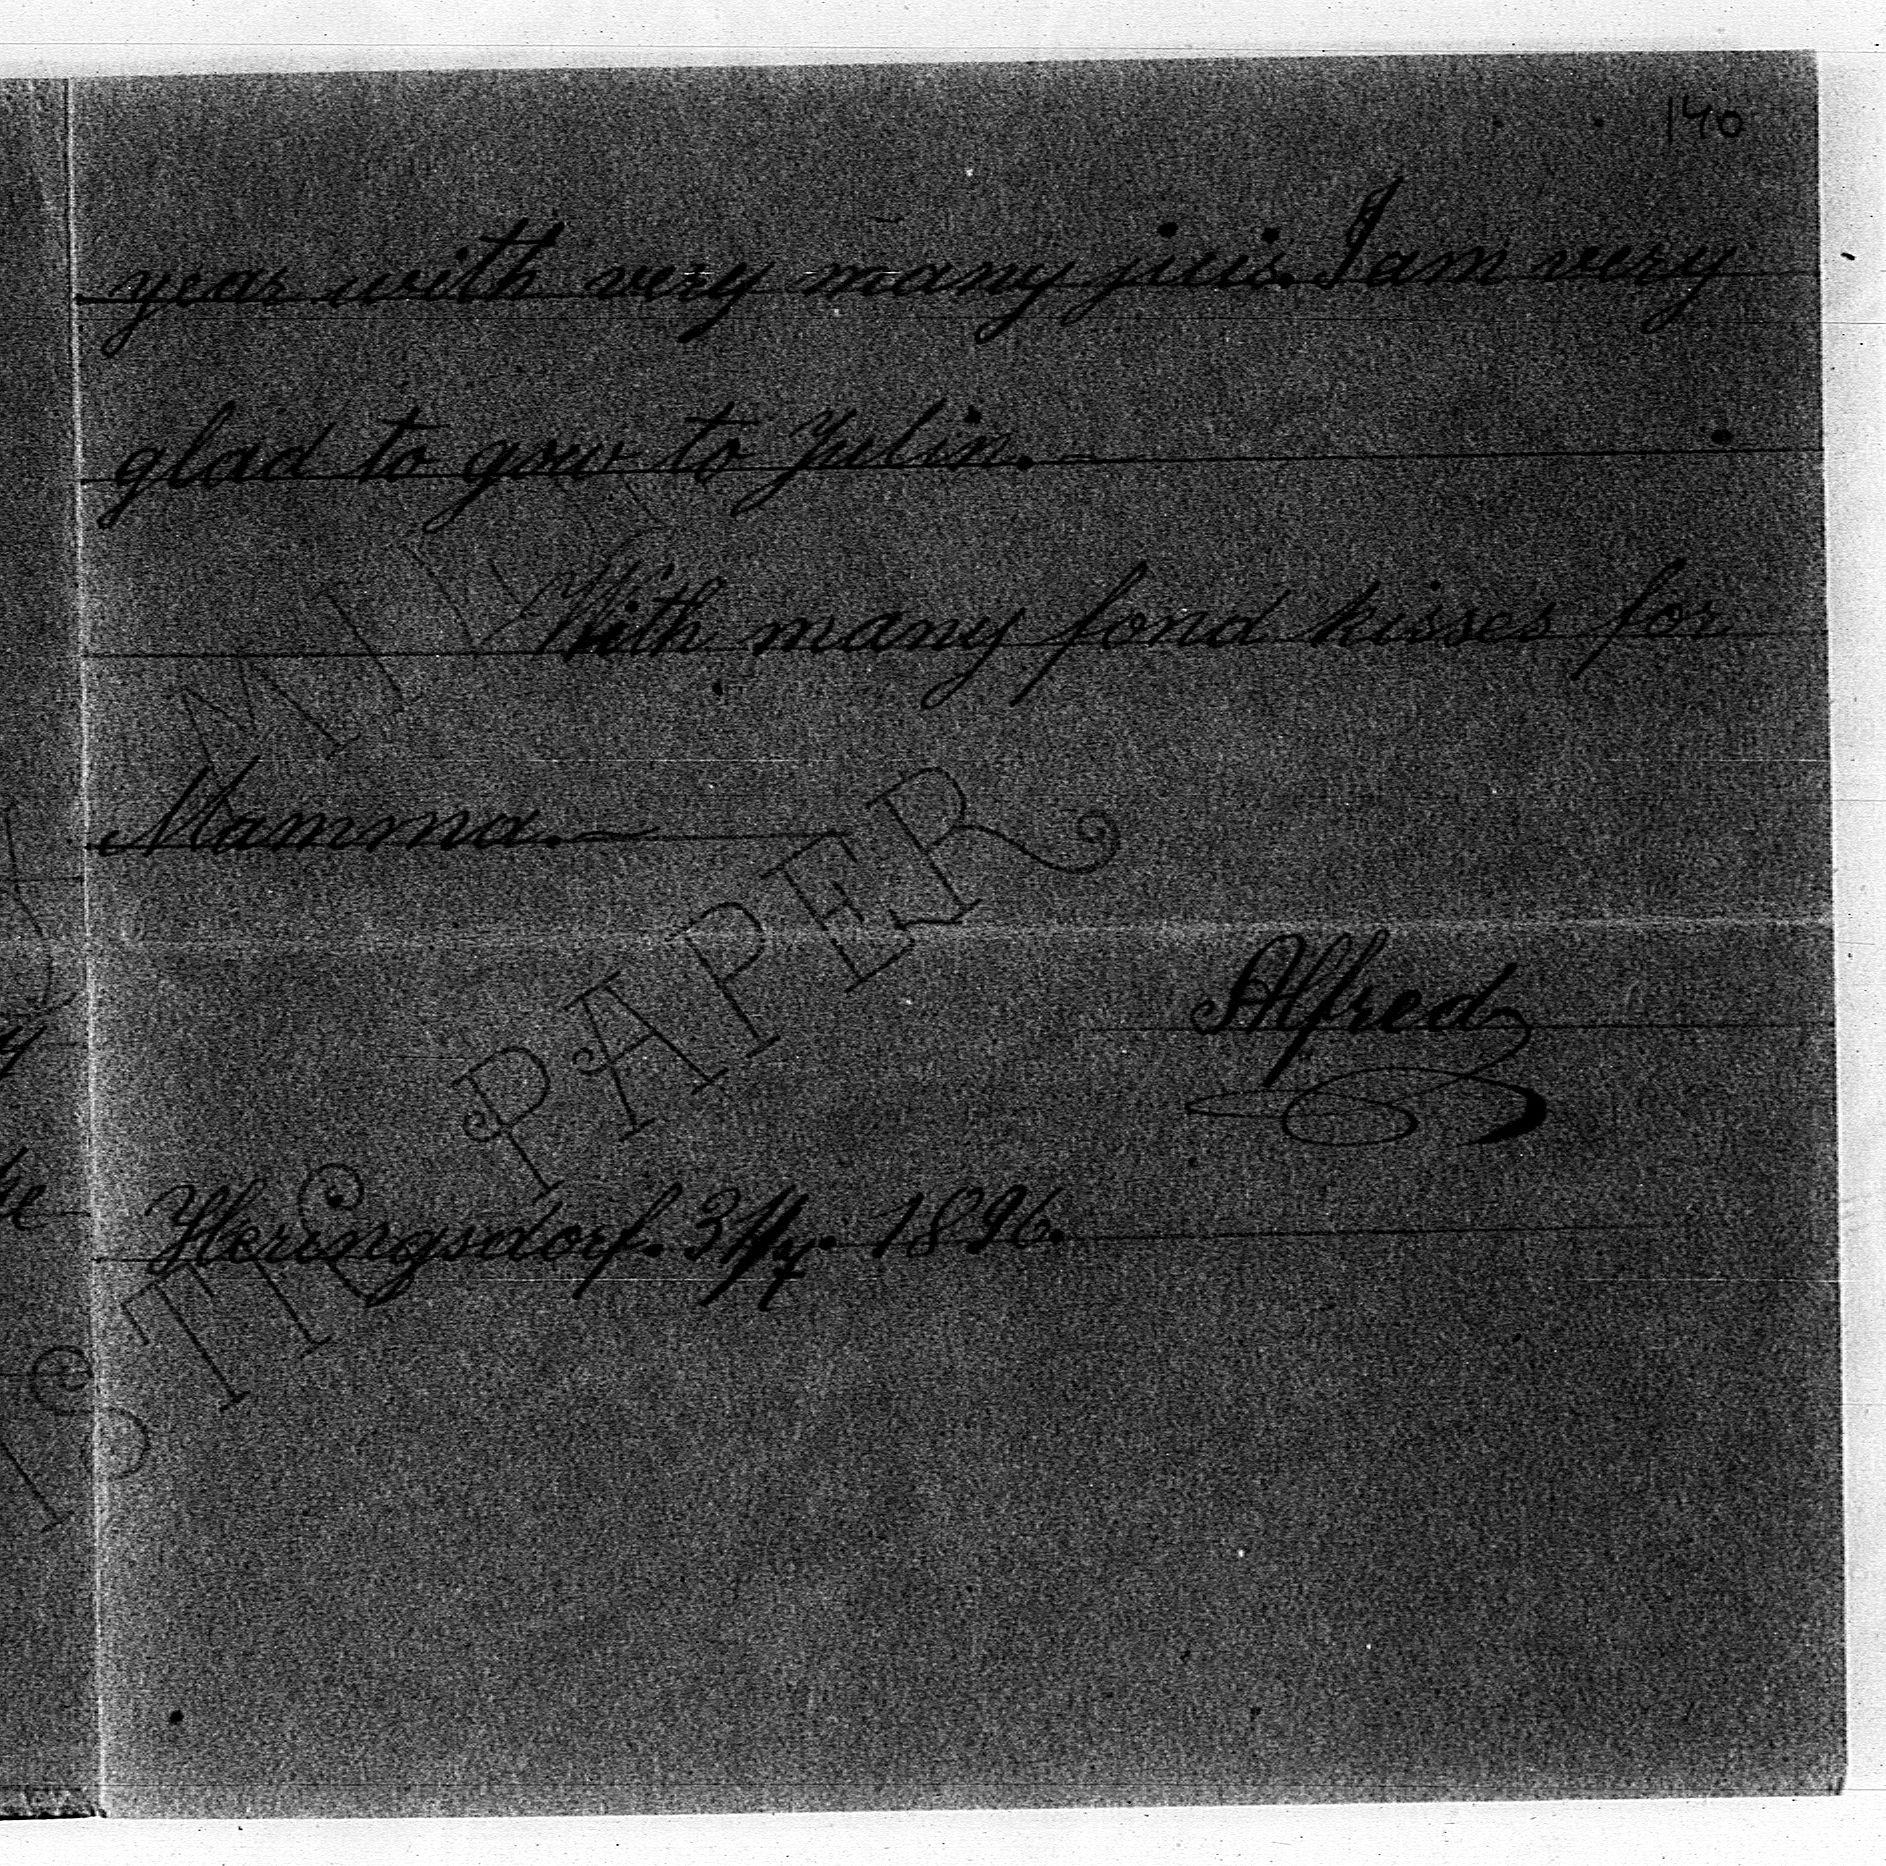 140
year with very many jicis. I am very
glad to gow to Julin.
With many fond kisses for
Mamma.
Alfred
Heringsdorf. 31/7. 1896.
PAPER